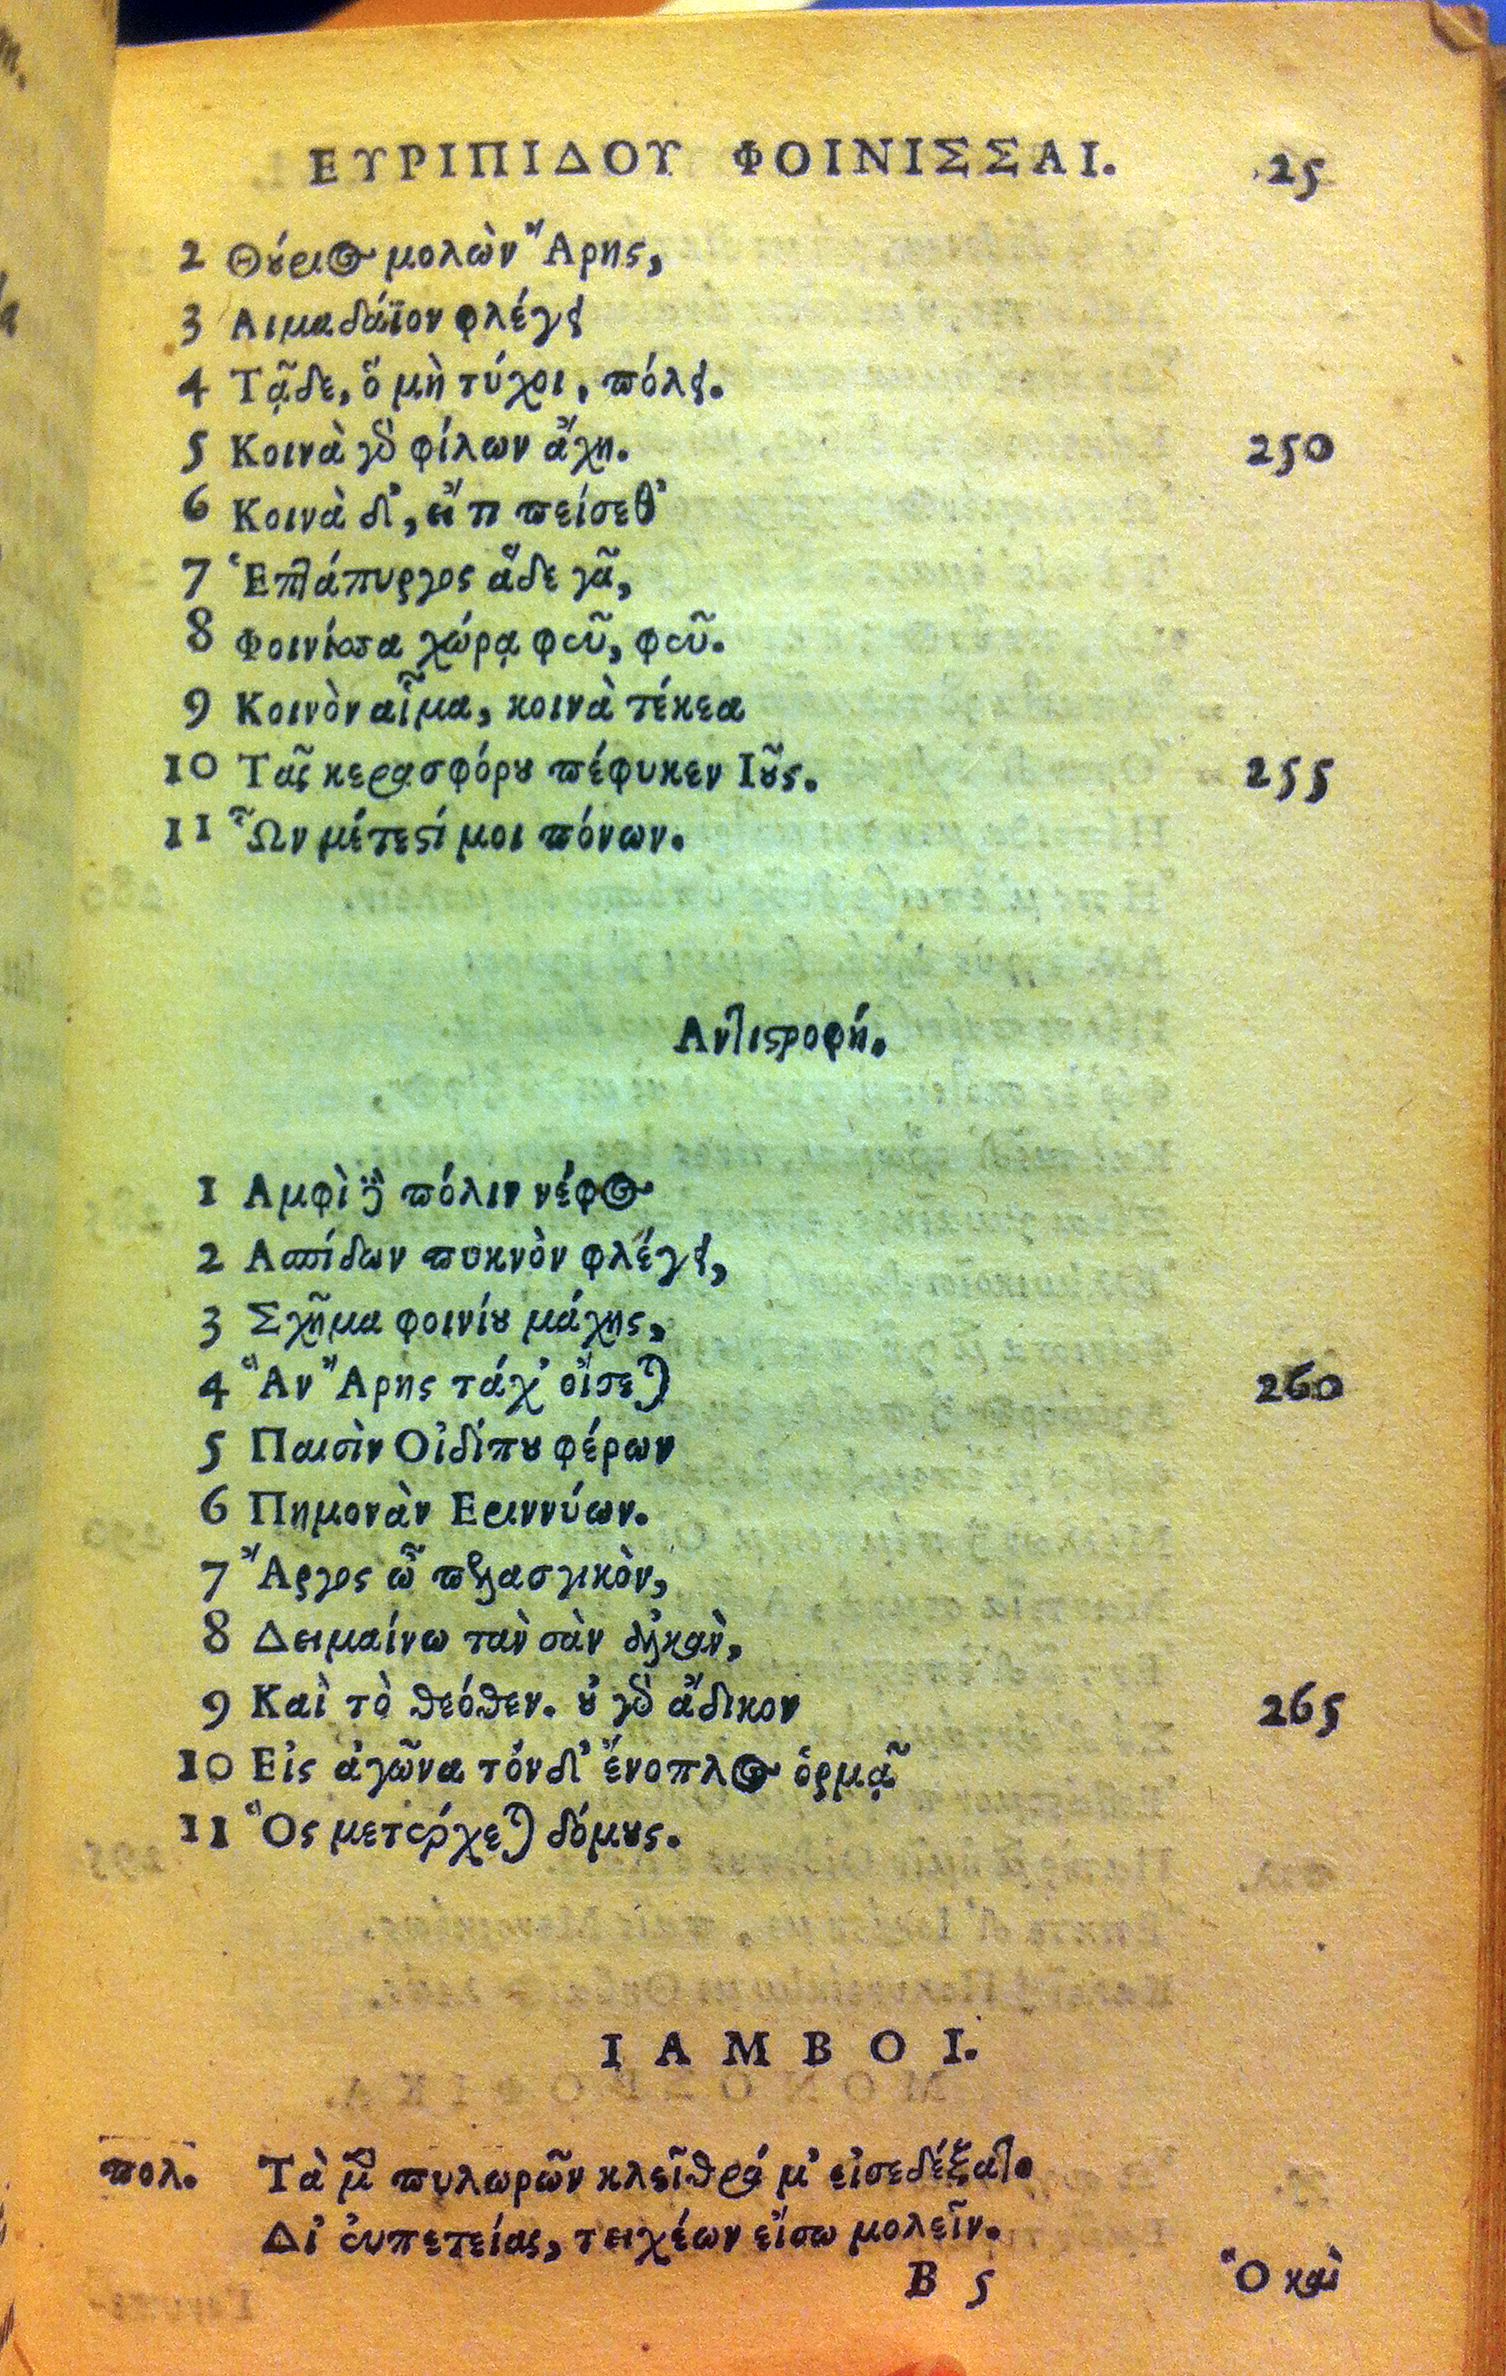 ΕΥΡΙΠΙΔΟΥ ΦΟΙΝΙΣΣΑΙ. 25
2 Θούριος μολὼν Ἄρης,
3 Αιμα δάϊον φλέγει
4 Τᾷδε, ὃ μὴ τύχοι, πόλει.
5 Κοινὰ γὰρ φίλων ἄχη. 250
6 Κοινὰ δ', εἴ τι πείσεθ'
7 Ἑπτάπυργος ἅδε γᾶ,
8 Φοινίσσᾳ χώρᾳ φεῦ, φεῦ.
9 Κοινὸν αἷμα, κοινὰ τέκεα
10 Τᾶς κερασφόρου πέφυκεν Ιοῦς. 255
11 Ὧν μέτεστί μοι πόνων.
Αντιστροφή.
1 Αμφὶ δὲ πόλιν νέφος
2 Ασπίδων πυκνὸν φλέγει,
3 Σχῆμα φοινίου μάχης,
4 Ἃν Ἄρης τάχ' οἴσεται 260
5 Παισὶν Οἰδίπου φέρων
6 Πημονὰν Εριννύων.
7 Ἄργος ὦ πελασγικὸν,
8 Δειμαίνω ταὶν σὰν ἀλκὰν,
9 Καὶ τὸ θεόθεν. οὐ γὰρ ἄδικον 265
10 Εἰς ἀγῶνα τόνδ' ἔνοπλος ὁρμᾷ
11 Ὃς μετέρχεται δόμους.
ΙΑΜΒΟΙ.
πολ. Τὰ μὲν πυλωρῶν κλεῖθρά μ' εἰσεδέξατο
Δι' εὐπετείας, τειχέων εἴσω μολεῖν.
B 5 Ὃ καὶ